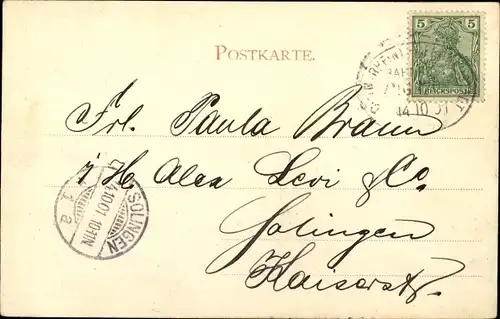 POSTKARTE.
5 5
REICHSPOST
14 10 01
Frl. Paula Braun
H. Alex Levi & Co.
Solingen
Kaiserstr.
SOLINGEN
14.10.01. 10-11N
1 a